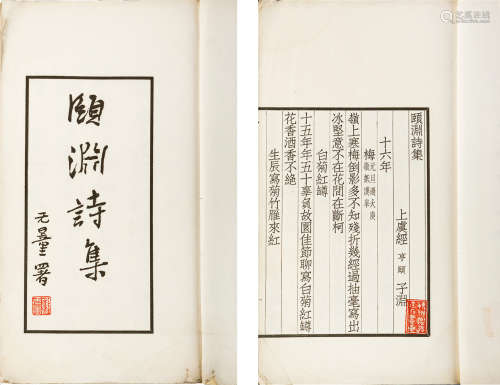 頤淵詩集
元量署
頤淵詩集
上虞經 亨頤 子淵
十六年
梅 元旦過大庾
嶺上寒梅倒影多不知殘折幾經過抽毫寫出
冰堅意不在花間在斷柯
白菊紅罇
十五年年五十辜負故園佳節聊寫白菊紅罇
花香酒香不絕
生辰寫菊竹雁來紅